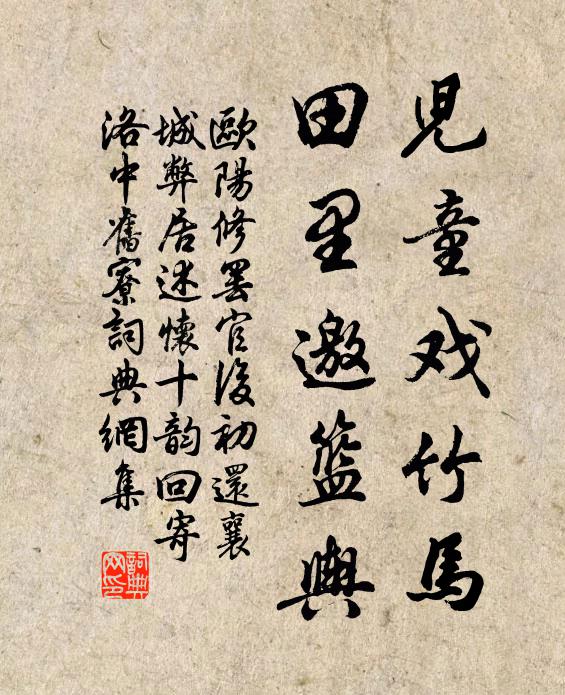 児童戏竹馬
田里邀籃輿
歐陽修罢官後初還襄
城弊居述懷十韵回寄
洛中舊寮詞典網集
詞典
网印